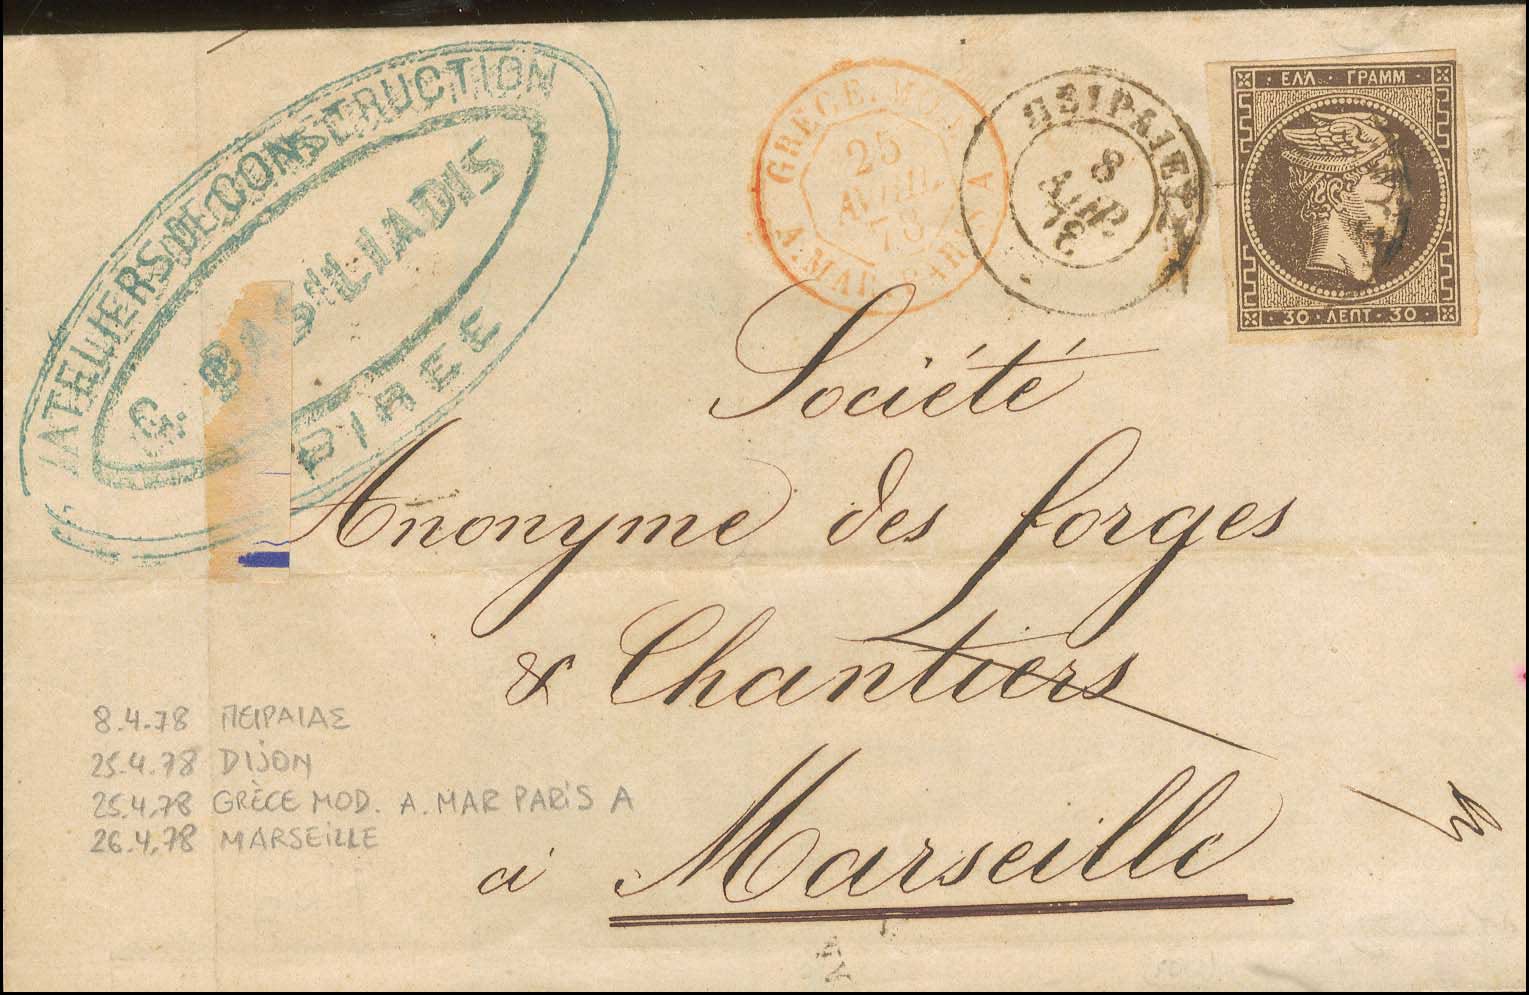 ATELIERS DE CONSTRUCTION
G. BASILIADIS
PIREE
GRECE. MOD.
25
AVRIL
78
A. MAR. PARIS A
ΠΕΙΡΑΙΕΥΣ
8
ΑΠΡ
78
ΕΛΛ · ΓΡΑΜΜ
30 · ΛΕΠΤ · 30
Société
Anonyme des forges
& Chantiers
à Marseille
8.4.78 ΠΕΙΡΑΙΑΣ
25.4.78 DIJON
25.4.78 GRÈCE MOD. A. MAR PARIS A
26.4.78 MARSEILLE